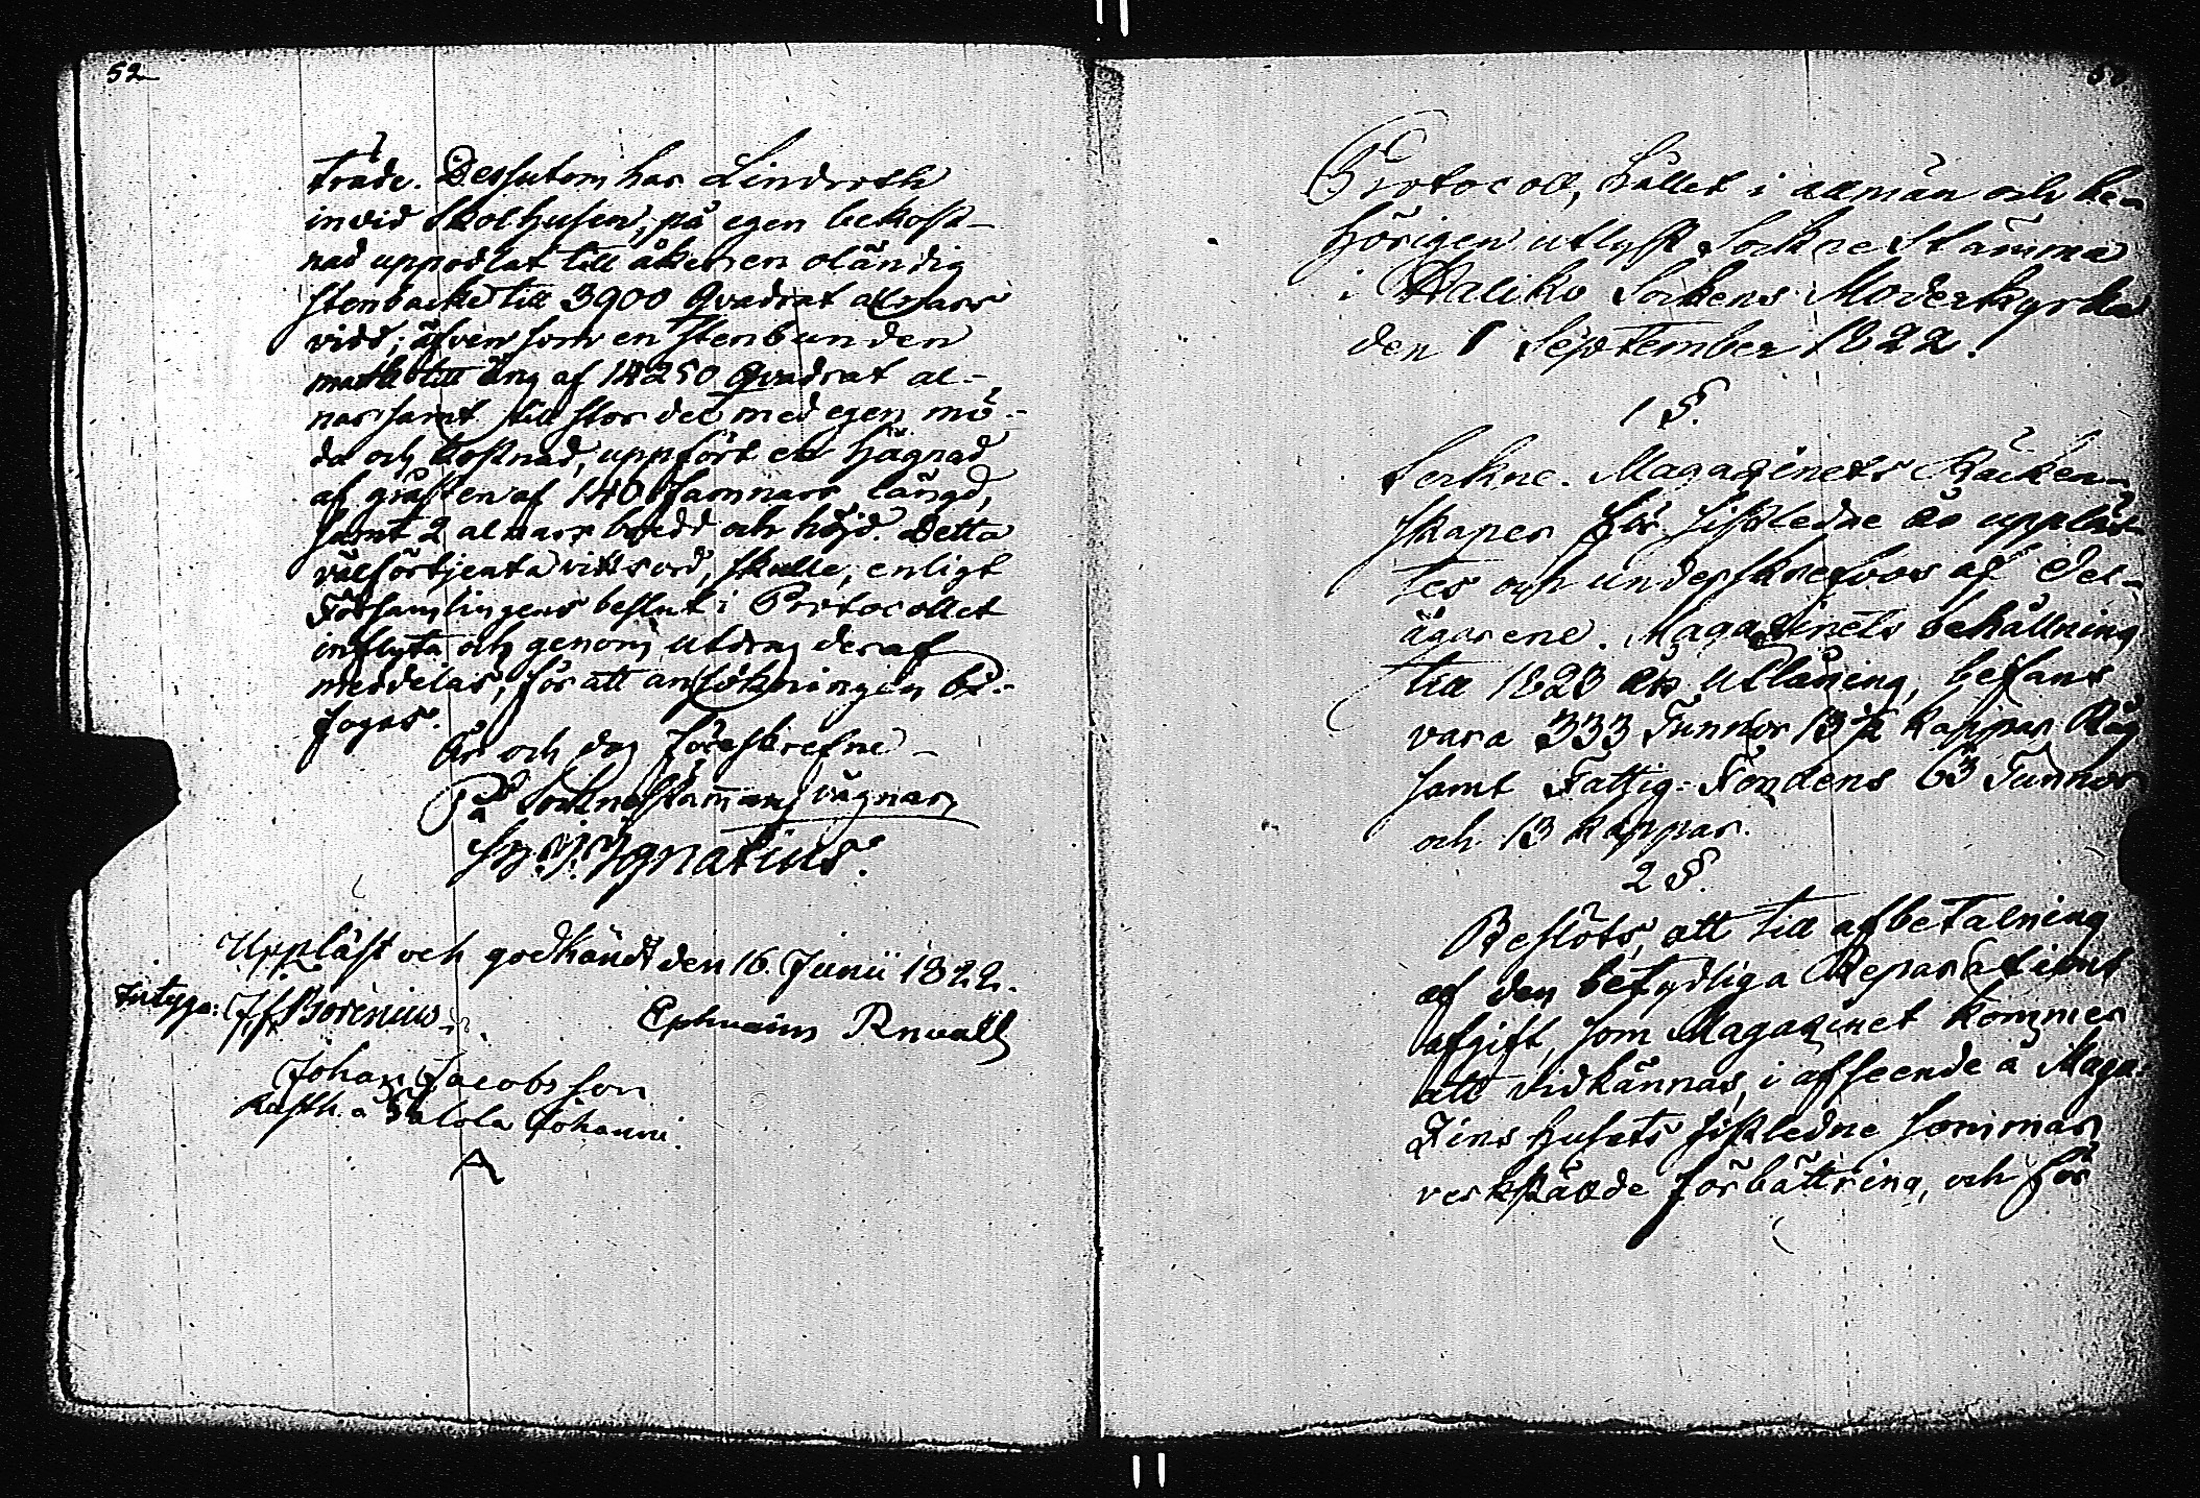 52
träde. Dessutom har Lindroth
invid Skolhusen, på egen bekost-
nad uppodlat till åker en oländig
stenbacke till 3900 Qvadrat alnars
vidd; äfven som en stenbunden
mark till äng af 14250 Qvadrat al-
nar samt till stor del med egen mö-
da och kostnad, uppfört en hägnad
af gråsten af 140 famnars längd,
samt 2 alnars bredd och höjd. Detta
välförtjenta vittsord, skulle, enligt
Församlingens beslut i Protocollet
inflyta och genom utdrag deraf
meddelas, för att ansökningen bi-
fogas.
År och dag föreskrefne
På Socknestämmans vägnar
Ignatius.
Uppläst och godkändt den 16. Junii 1822.
Intyga: Borenius
Ephraim Rnvall
Johan Jacobsson
Rusth. å Salola Johanni.
A
Protocoll, hållet i allmän och be-
hörigen utlyst Sockne Stämma
i Haliko Sockens Moderkyrka
den 1 September 1822.
1 §.
Sockne-Magazinets Räken-
skaper för sistledne år uppläs-
tes och underskrefvos af Del-
ägarene. Magazinets behållning
till 1823 års utlåning, befans
vara 333 Tunnor 13 1/2 kappar Råg
samt Fattig-Fondens 63 Tunnor
och 13 kappar.
2 §.
Beslöts, att till afbetalning
af den betydliga Reparations
afgift, som Magazinet kommer
att vidkännas, i afseende å Maga-
zins husets sistledne sommar
verkstälde förbättring, och för